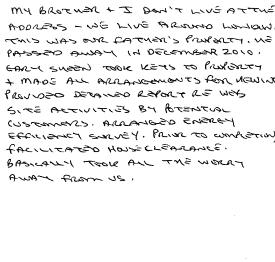 MY BROTHER + I DON'T LIVE AT THE
ADDRESS - WE LIVE AROUND LONDON.
THIS WAS OUR FATHER'S PROPERTY. HE
PASSED AWAY IN DECEMBER 2010.
GARY SHEEN TOOK KEYS TO PROPERTY
+ MADE ALL ARRANGEMENTS FOR VIEWIN
PROVIDED DETAILED REPORT RE WEB
SITE ACTIVITIES BY POTENTIAL
CUSTOMERS. ARRANGED ENERGY
EFFICIENCY SURVEY. PRIOR TO COMPLETION,
FACILITATED HOUSE CLEARANCE.
BASICALLY TOOK ALL THE WORRY
AWAY FROM US.